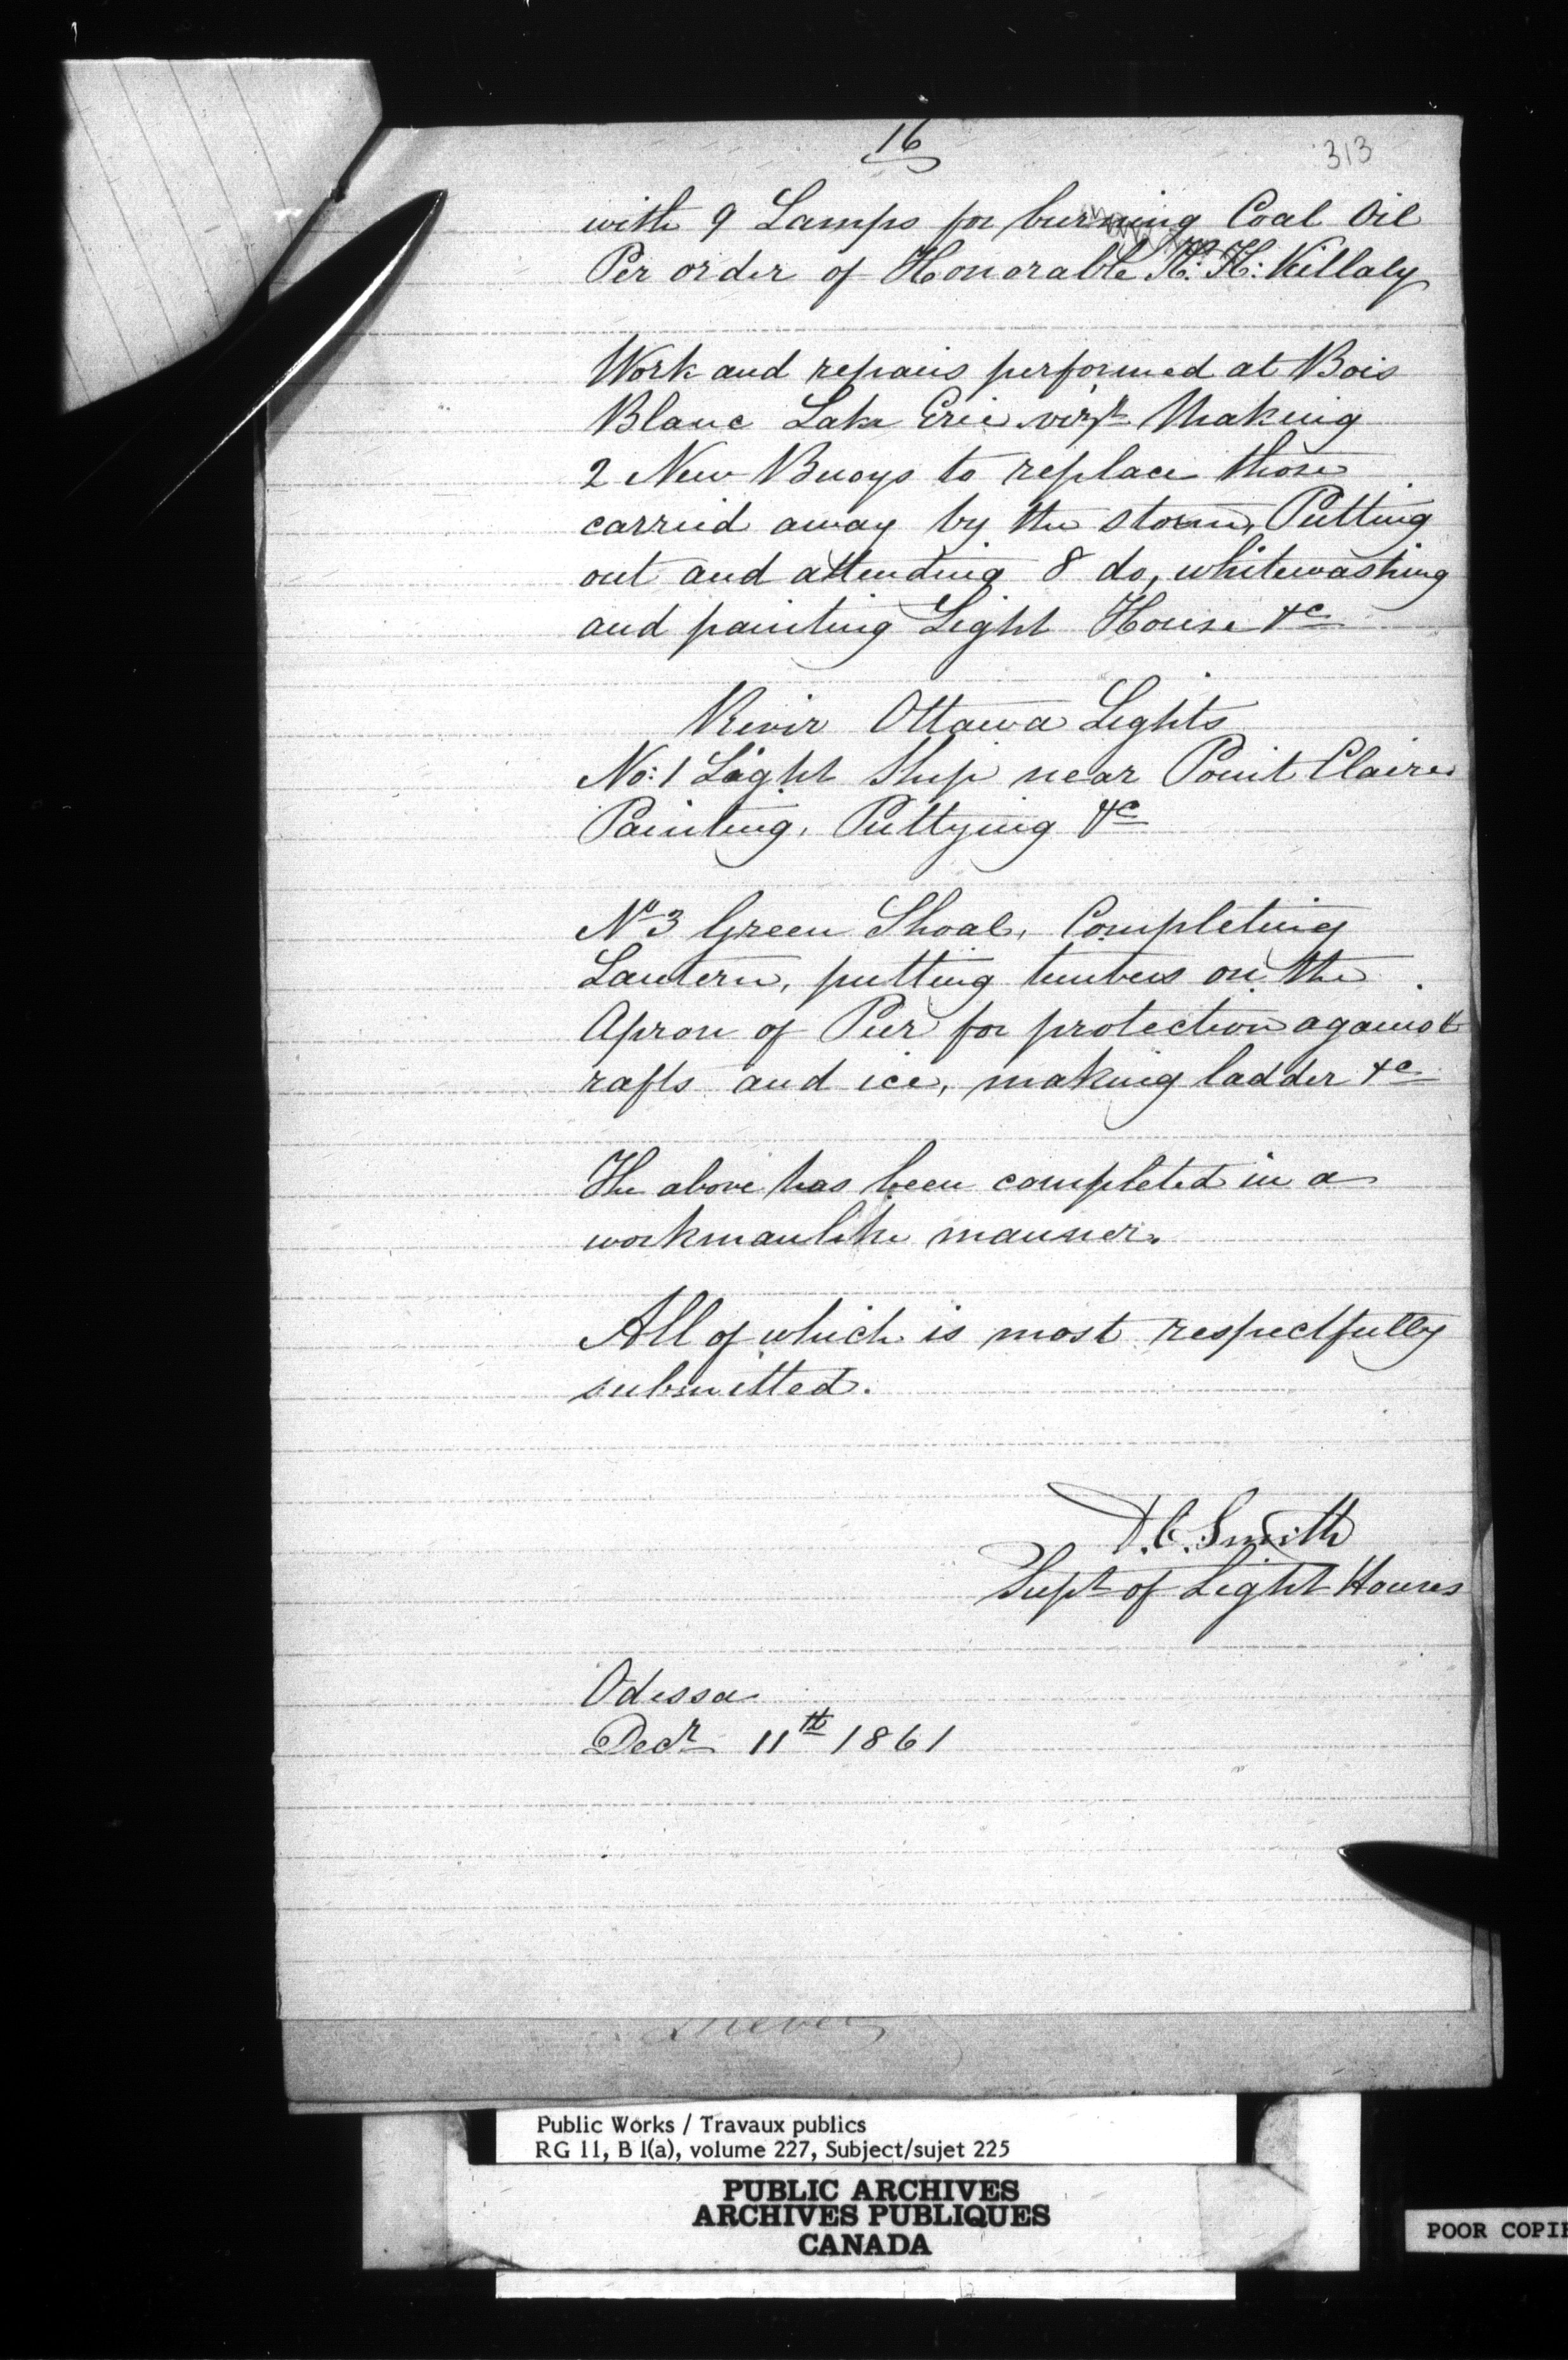 16
313
with 9 Lamps for burning Coal Oil
Per order of Honorable H. H: Killaly
Work and repairs performed at Bois
Blanc Lake Erie vizt Making
2 New Buoys to replace those
carried away by the storm, Putting
out and attending 8 do, whitewashing
and painting Light House &c
River Ottawa Lights
No: 1 Light Ship near Point Claire
Painting, Puttying &c
No 3 Green Shoal, Completing
Lantern, putting timbers on the
Apron of Pier for protection against
rafts and ice, making ladder &c
The above has been completed in a
workmanlike manner.
All of which is most respectfully
submitted.
D. C. Smith
Supt of Light Houses
Odessa
Decr 11th 1861
Public Works / Travaux publics
RG 11, B 1(a), volume 227, Subject/sujet 225
PUBLIC ARCHIVES
ARCHIVES PUBLIQUES
CANADA
POOR COPIE